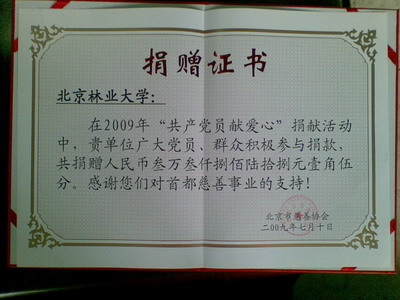 捐赠证书
北京林业大学：
在2009年“共产党员献爱心”捐献活动
中，贵单位广大党员、群众积极参与捐款，
共捐赠人民币叁万叁仟捌佰陆拾捌元壹角伍
分。感谢您们对首都慈善事业的支持！
北京市慈善协会
二00九年七月十日